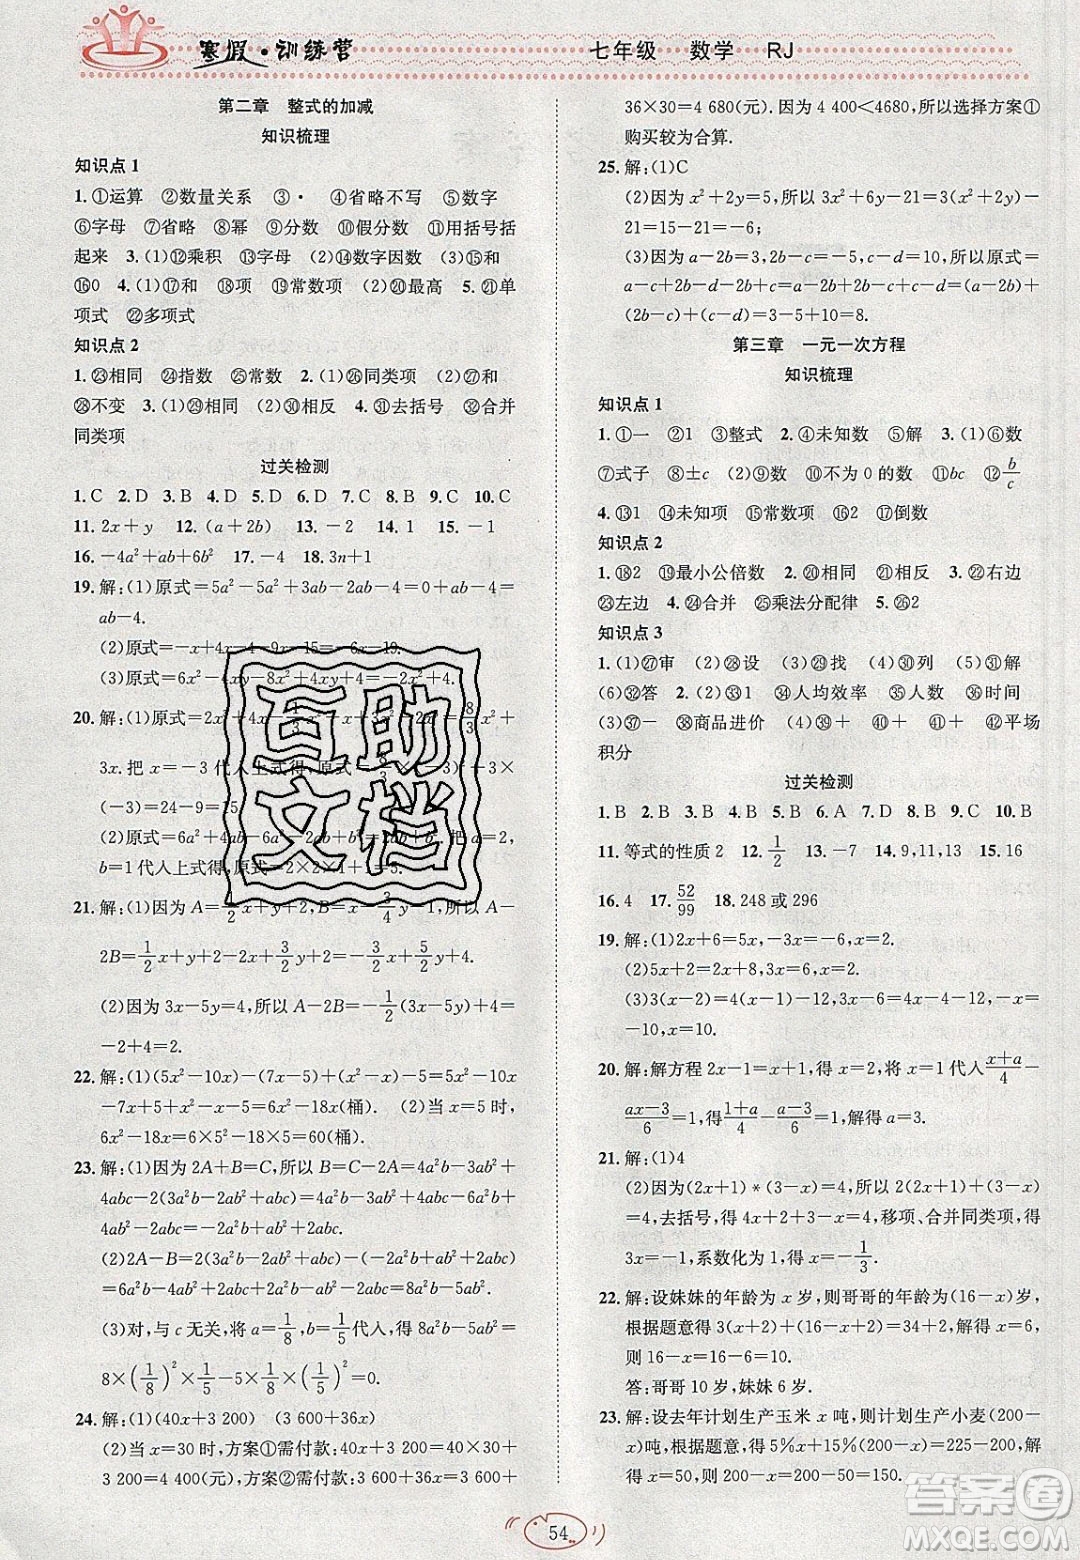 寒假·训练营
七年级 数学 RJ
第二章 整式的加减
知识梳理
知识点1
1.①运算 ②数量关系 ③· ④省略不写 ⑤数字
⑥字母 ⑦省略 ⑧幂 ⑨分数 ⑩假分数 ⑪用括号括
起来 2.⑫乘积 ⑬字母 ⑭数字因数 3.⑮和
⑯0 4.(1)⑰和 ⑱项 ⑲常数项 (2)⑳最高 5.㉑单
项式 ㉒多项式
知识点2
1.㉓相同 ㉔指数 ㉕常数 2.(1)㉖同类项 (2)㉗和
㉘不变 3.(1)㉙相同 (2)㉚相反 4.㉛去括号 ㉜合并
同类项
过关检测
1.C 2.D 3.B 4.D 5.D 6.D 7.D 8.C 9.C 10.C
11.2x+y 12.(a+2b) 13.-2 14.1 15.-1
16.-4a²+ab+6b² 17.-4 18.3n+1
19.解:(1)原式=5a²-5a²+ab-4=0+ab-4=
ab-4.
(2)原式=-x+4x-4-9x-15=-6x-19.
(3)原式=6x²-4xy-8x²+4xy+4=-2x²+4.
20.解:(1)原式=2x²+4x-1/3x²-x+x²=8/3x²+
3x.把 x=-3 代入上式得,原式=8/3×(-3)²+3×
(-3)=24-9=15.
(2)原式=6a²+4ab-6a²-2ab=2ab,把 a=2,
b=1代入上式得,原式=2×2×1+1=5.
21.解:(1)因为 A=1/2x+y,B=-3/4y-1,所以 A-
2B=1/2x+y+2=1/2x+3/2y+2.
(2)因为 3x-5y=4,所以 A-2B=
-2+4=2.
22.解:(1)(5x²-10x)-(7x-5)+(x²-x)=5x²-10x
-7x+5+x²-x-5=6x²-18x(桶). (2)当 x=5 时,
6x²-18x=6×5²-18×5=60(桶).
23.解:(1)因为 2A+B=C,所以 B=C-2A=4a²b-3ab²+
4abc-2(3a²b-2ab²+abc)=4a²b-3ab²+4abc-6a²b+
4ab²-2abc=-2a²b+ab²+2abc.
(2)2A-B=2(3a²b-2ab²+abc)-(-2a²b+ab²+
2abc)=6a²b-4ab²+2abc+2a²b-ab²-2abc=8a²b-5ab².
(3)对,与 c 无关,将 a=1/8,b=1/5代入,得 8a²b-5ab²=
8×(1/8)²×1/5-5×1/8×(1/5)²=0.
24.解:(1)(40x+3 200) (3 600+36x)
(2)当 x=30 时,方案①需付款:40x+3 200=40×30+
3 200=4 400(元),方案②需付款:3 600+36x=3 600+
36×30=4 680(元).因为 4 400<4680,所以选择方案①
购买较为合算.
25.解:(1)C
(2)因为 x²+2y=5,所以 3x²+6y-21=3(x²+2y)-
21=15-21=-6;
(3)因为 a-2b=3,2b-c=-5,c-d=10,所以原式=
a-c+2b-d-2b+c=a-d=(a-2b)+(2b-c)+
(c-d)=3-5+10=8.
第三章 一元一次方程
知识梳理
知识点1
1.①一 ②1 ③整式 2.④未知数 ⑤解 3.(1)⑥数
⑦式子 ⑧±c (2)⑨数 ⑩不为 0 的数 ⑪bc ⑫b/c
4.⑬1 ⑭未知项 ⑮常数项 ⑯2 ⑰倒数
知识点2
1.⑱2 ⑲最小公倍数 2.⑳相同 ㉑相反 3.㉒右边
㉓左边 4.㉔合并 ㉕乘法分配律 5.㉖2
知识点3
1.(1)㉗审 (2)㉘设 (3)㉙找 (4)㉚列 (5)㉛解
(6)㉜答 2.(2)㉝1 ㉞人均效率 ㉟人数 ㊱人数
(3)㊲- ㊳商品进价 (4)㊴+ ㊵+ ㊶+ ㊷平场
积分
过关检测
1.B 2.B 3.B 4.A 5.B 6.A 7.D 8.B 9.C 10.B
11.等式的性质2 12.1/2 13.-7 14.9,11 15.16
16.4 17.52/99 18.248 或 296
19.解:(1)2x+6=5x,-3x=-6,x=2.
(2)5x+2=4x+4,x=2.
(3)3(x-2)=2(2-x)+24,3x-6=4-2x+24
-10,x=10.
20.解:解方程 2x-1=1,得 x=1,将 x=1代入x+a/4=1+
ax-3/6=1,得1+a/4=a-3/6+1,解得 a=3.
21.解:(1)4
(2)因为(2x+1)*(3-x)=4,所以 2(2x+1)+(3-x)
=4,去括号,得 4x+2+3-x=4,移项、合并同类项,得
3x=-1,系数化为1,得 x=-1/3.
22.解:设妹妹的年龄为 x 岁,则哥哥的年龄为(16-x)岁,
根据题意得 3(x+2)+(16-x)=34+2,解得 x=6,
则 16-x=16-6=10.
答:哥哥 10 岁,妹妹 6 岁.
23.解:设去年计划生产玉米 x 吨,则计划生产小麦(200-
x)吨,根据题意,得 5%x+15%(200-x)=225-200,
解得 x=50,则 200-x=200-50=150.
54
互助文档
答案圈
MXQE.COM